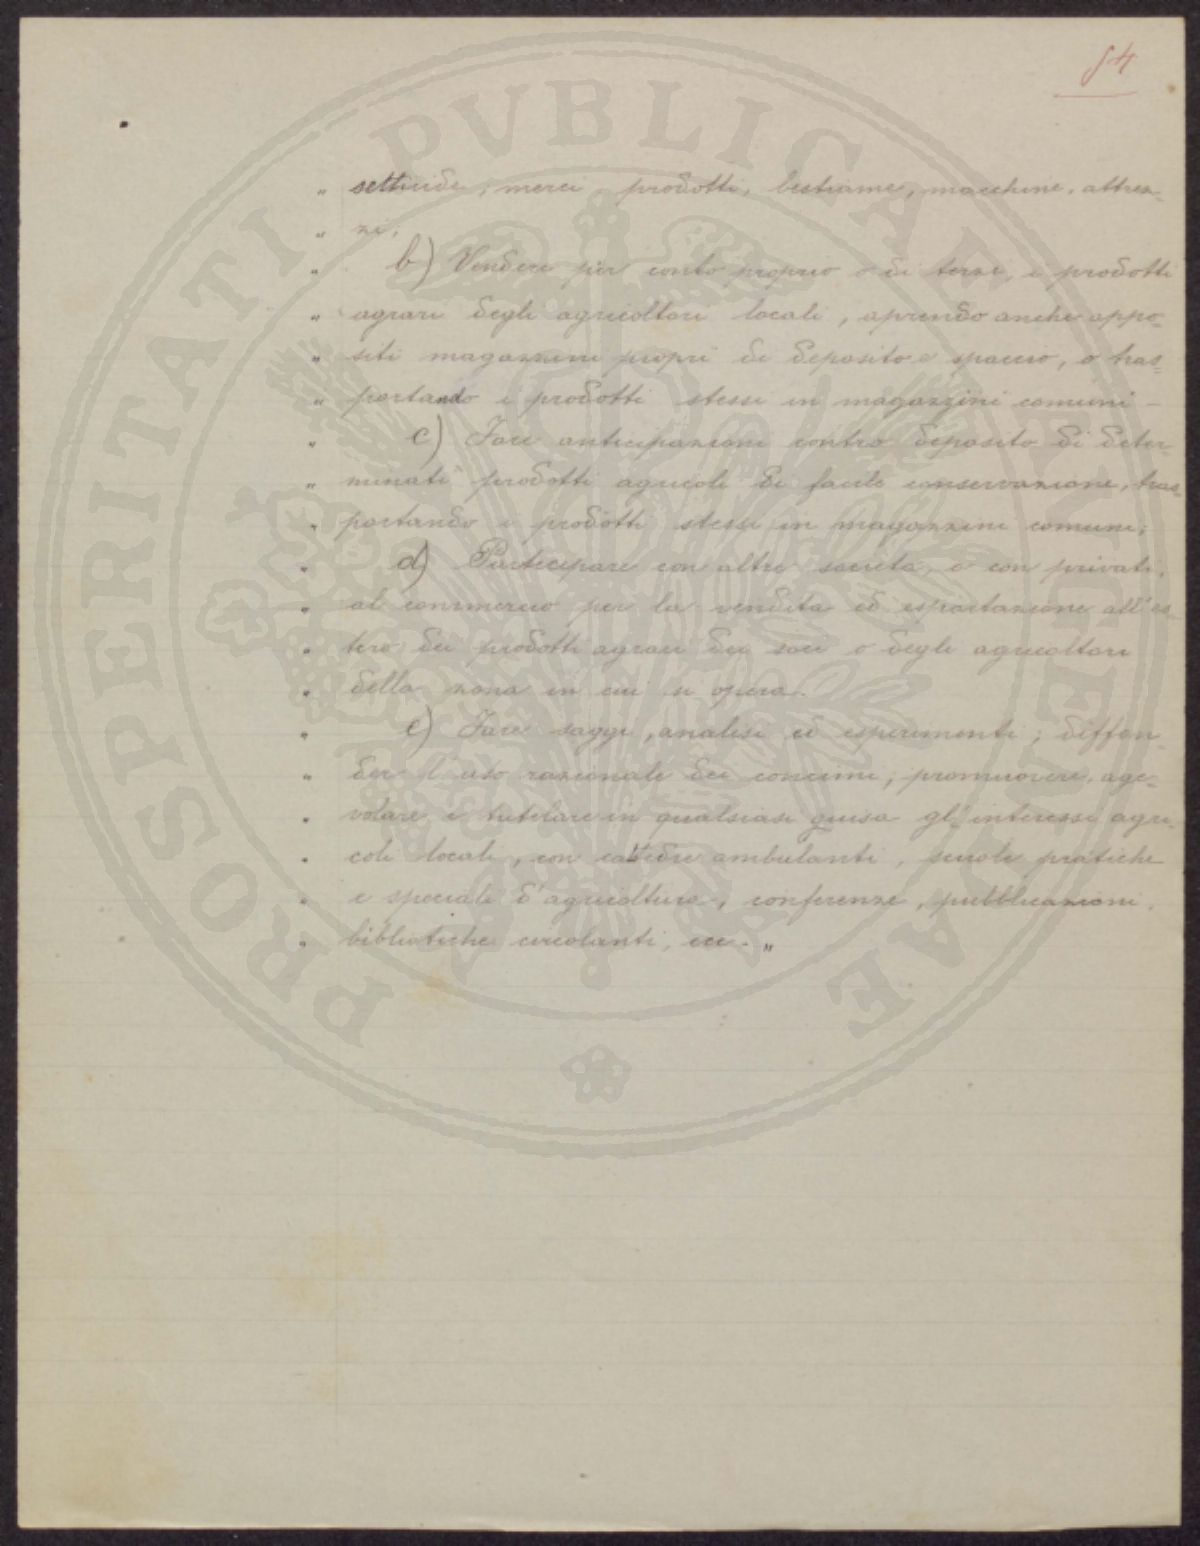 54
„ setticide, merci, prodotti, bestiame, macchine, attrez-
„ zi;
„ b) Vendere per conto proprio o di terzi, i prodotti
„ agrari degli agricoltori locali, aprendo anche appo-
„ siti magazzini propri di deposito e spaccio, o tras-
„ portando i prodotti stessi in magazzini comuni -
„ c) Fare anticipazioni contro deposito di deter-
„ minati prodotti agricoli di facile conservazione, tras-
„ portando i prodotti stessi in magazzini comuni;
„ d) Partecipare con altre società, o con privati,
„ al commercio per la vendita ed esportazione all'es-
„ tero dei prodotti agrari dei soci o degli agricoltori
„ della zona in cui si opera.
„ e) Fare saggi, analisi ed esperimenti; diffon-
„ der l'uso razionale dei concimi, promuovere, age-
„ volare e tutelare in qualsiasi guisa gl'interessi agri-
„ coli locali, con cattedre ambulanti, scuole pratiche
„ e speciali d'agricoltura, conferenze, pubblicazioni,
„ biblioteche circolanti, ecc. „
PROSPERITATI PVBLICAE AVGENDAE